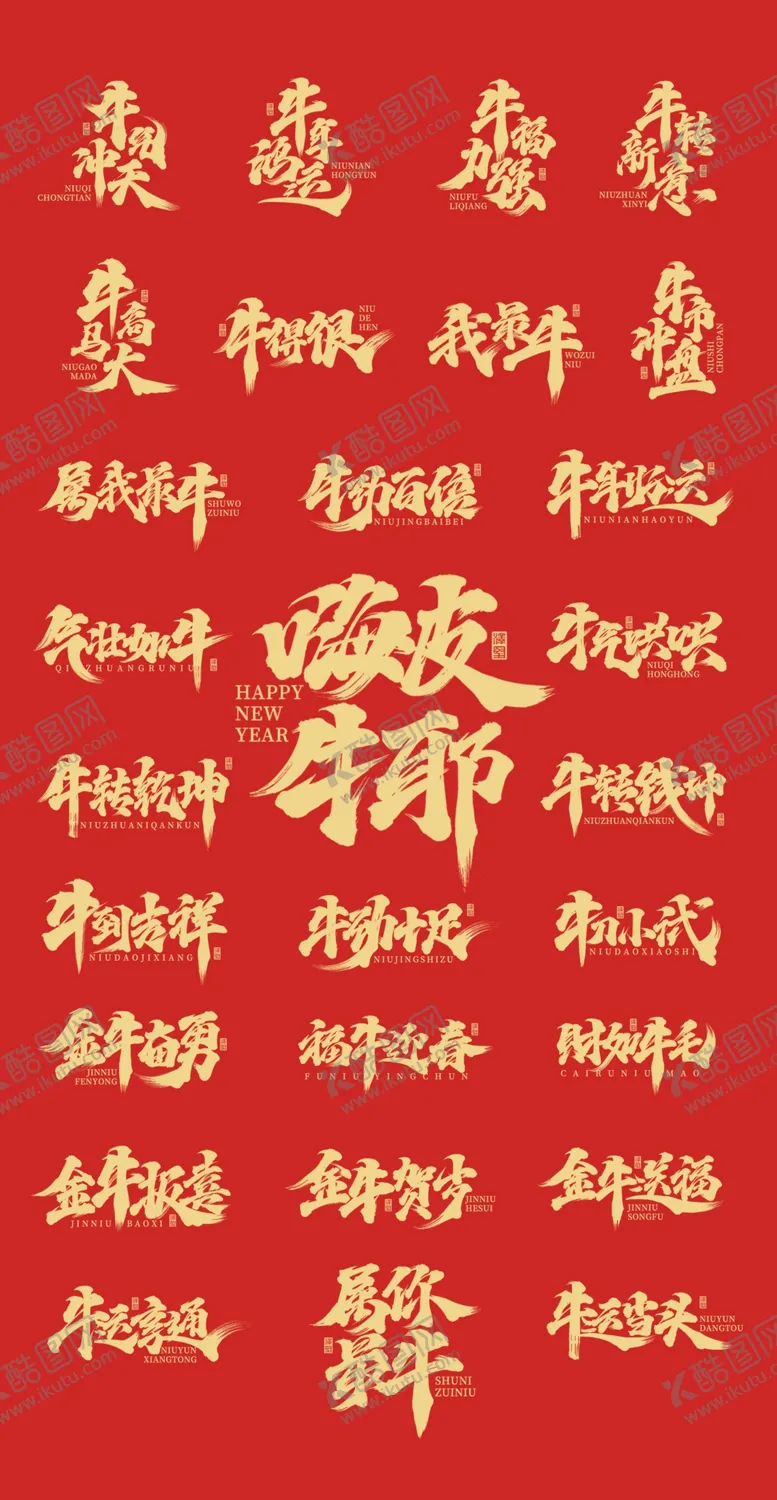 牛气冲天
NIUQI
CHONGTIAN
牛年鸿运
NIUNIAN
HONGYUN
牛福力强
NIUFU
LIQIANG
牛转新意
NIUZHUAN
XINYI
牛高马大
NIUGAO
MADA
牛得很
NIU
DE
HEN
我最牛
WOZUI
NIU
牛市冲盘
NIUSHI
CHONGPAN
属我最牛
SHUWO
ZUINIU
牛劲百倍
NIUJINGBAIBEI
牛年好运
NIUNIANHAOYUN
气壮如牛
QIZHUANGRUNIU
嗨皮
牛耶
HAPPY
NEW
YEAR
牛气哄哄
NIUQI
HONGHONG
牛转乾坤
NIUZHUANIQANKUN
牛转钱坤
NIUZHUANQIANKUN
牛到吉祥
NIUDAOJIXIANG
牛劲十足
NIUJINGSHIZU
牛刀小试
NIUDAOXIAOSHI
金牛奋勇
JINNIU
FENYONG
福牛迎春
FUNIUYINGCHUN
财如牛毛
CAIRUNIUMAO
金牛报喜
JINNIU BAOXI
金牛贺岁
JINNIU
HESUI
金牛送福
JINNIU
SONGFU
牛运亨通
NIUYUN
XIANGTONG
属你
最牛
SHUNI
ZUINIU
牛运当头
NIUYUN
DANGTOU
酷图网
www.ikutu.com